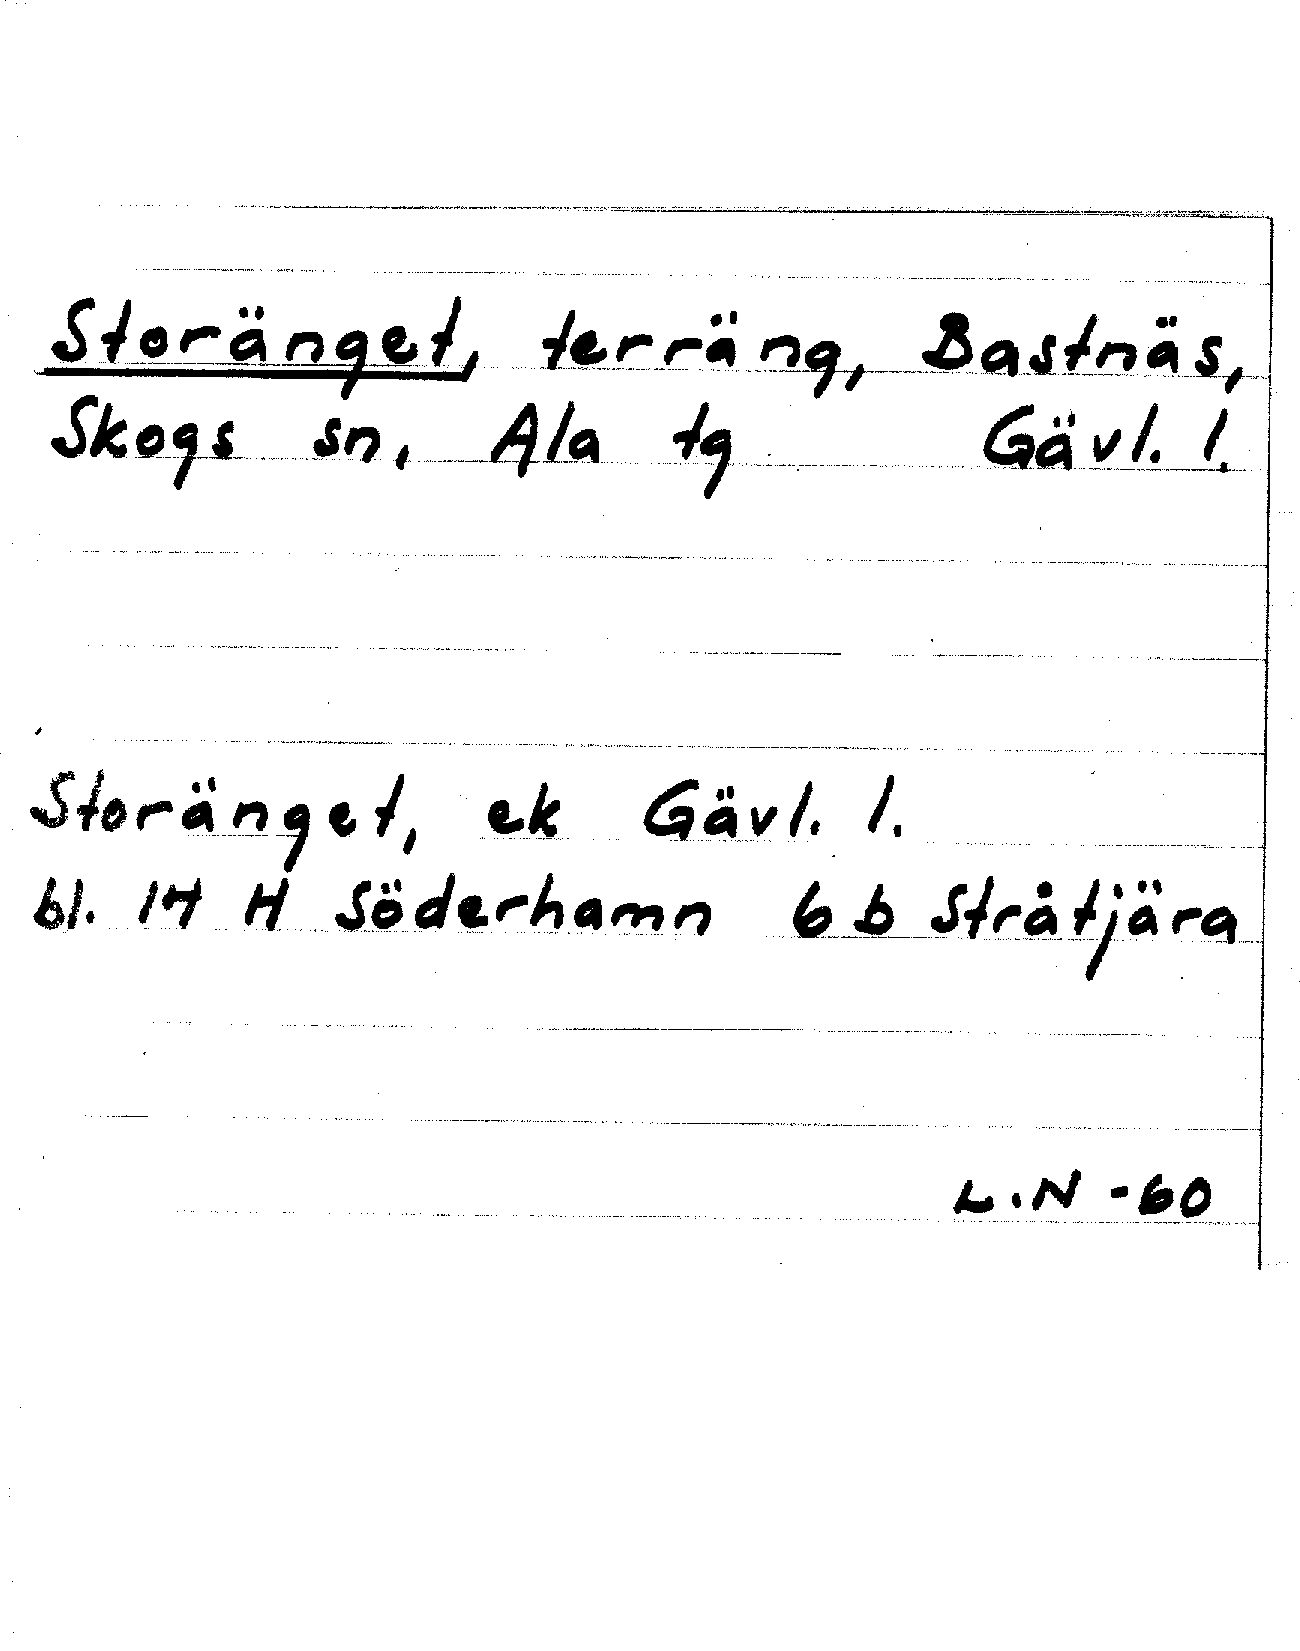 Storänget, terräng, Bastnäs,
Skogs sn, Ala tg Gävl. l.
Storänget, ek Gävl. l.
bl. 14 H Söderhamn 6 b Stråtjära
L.N -60